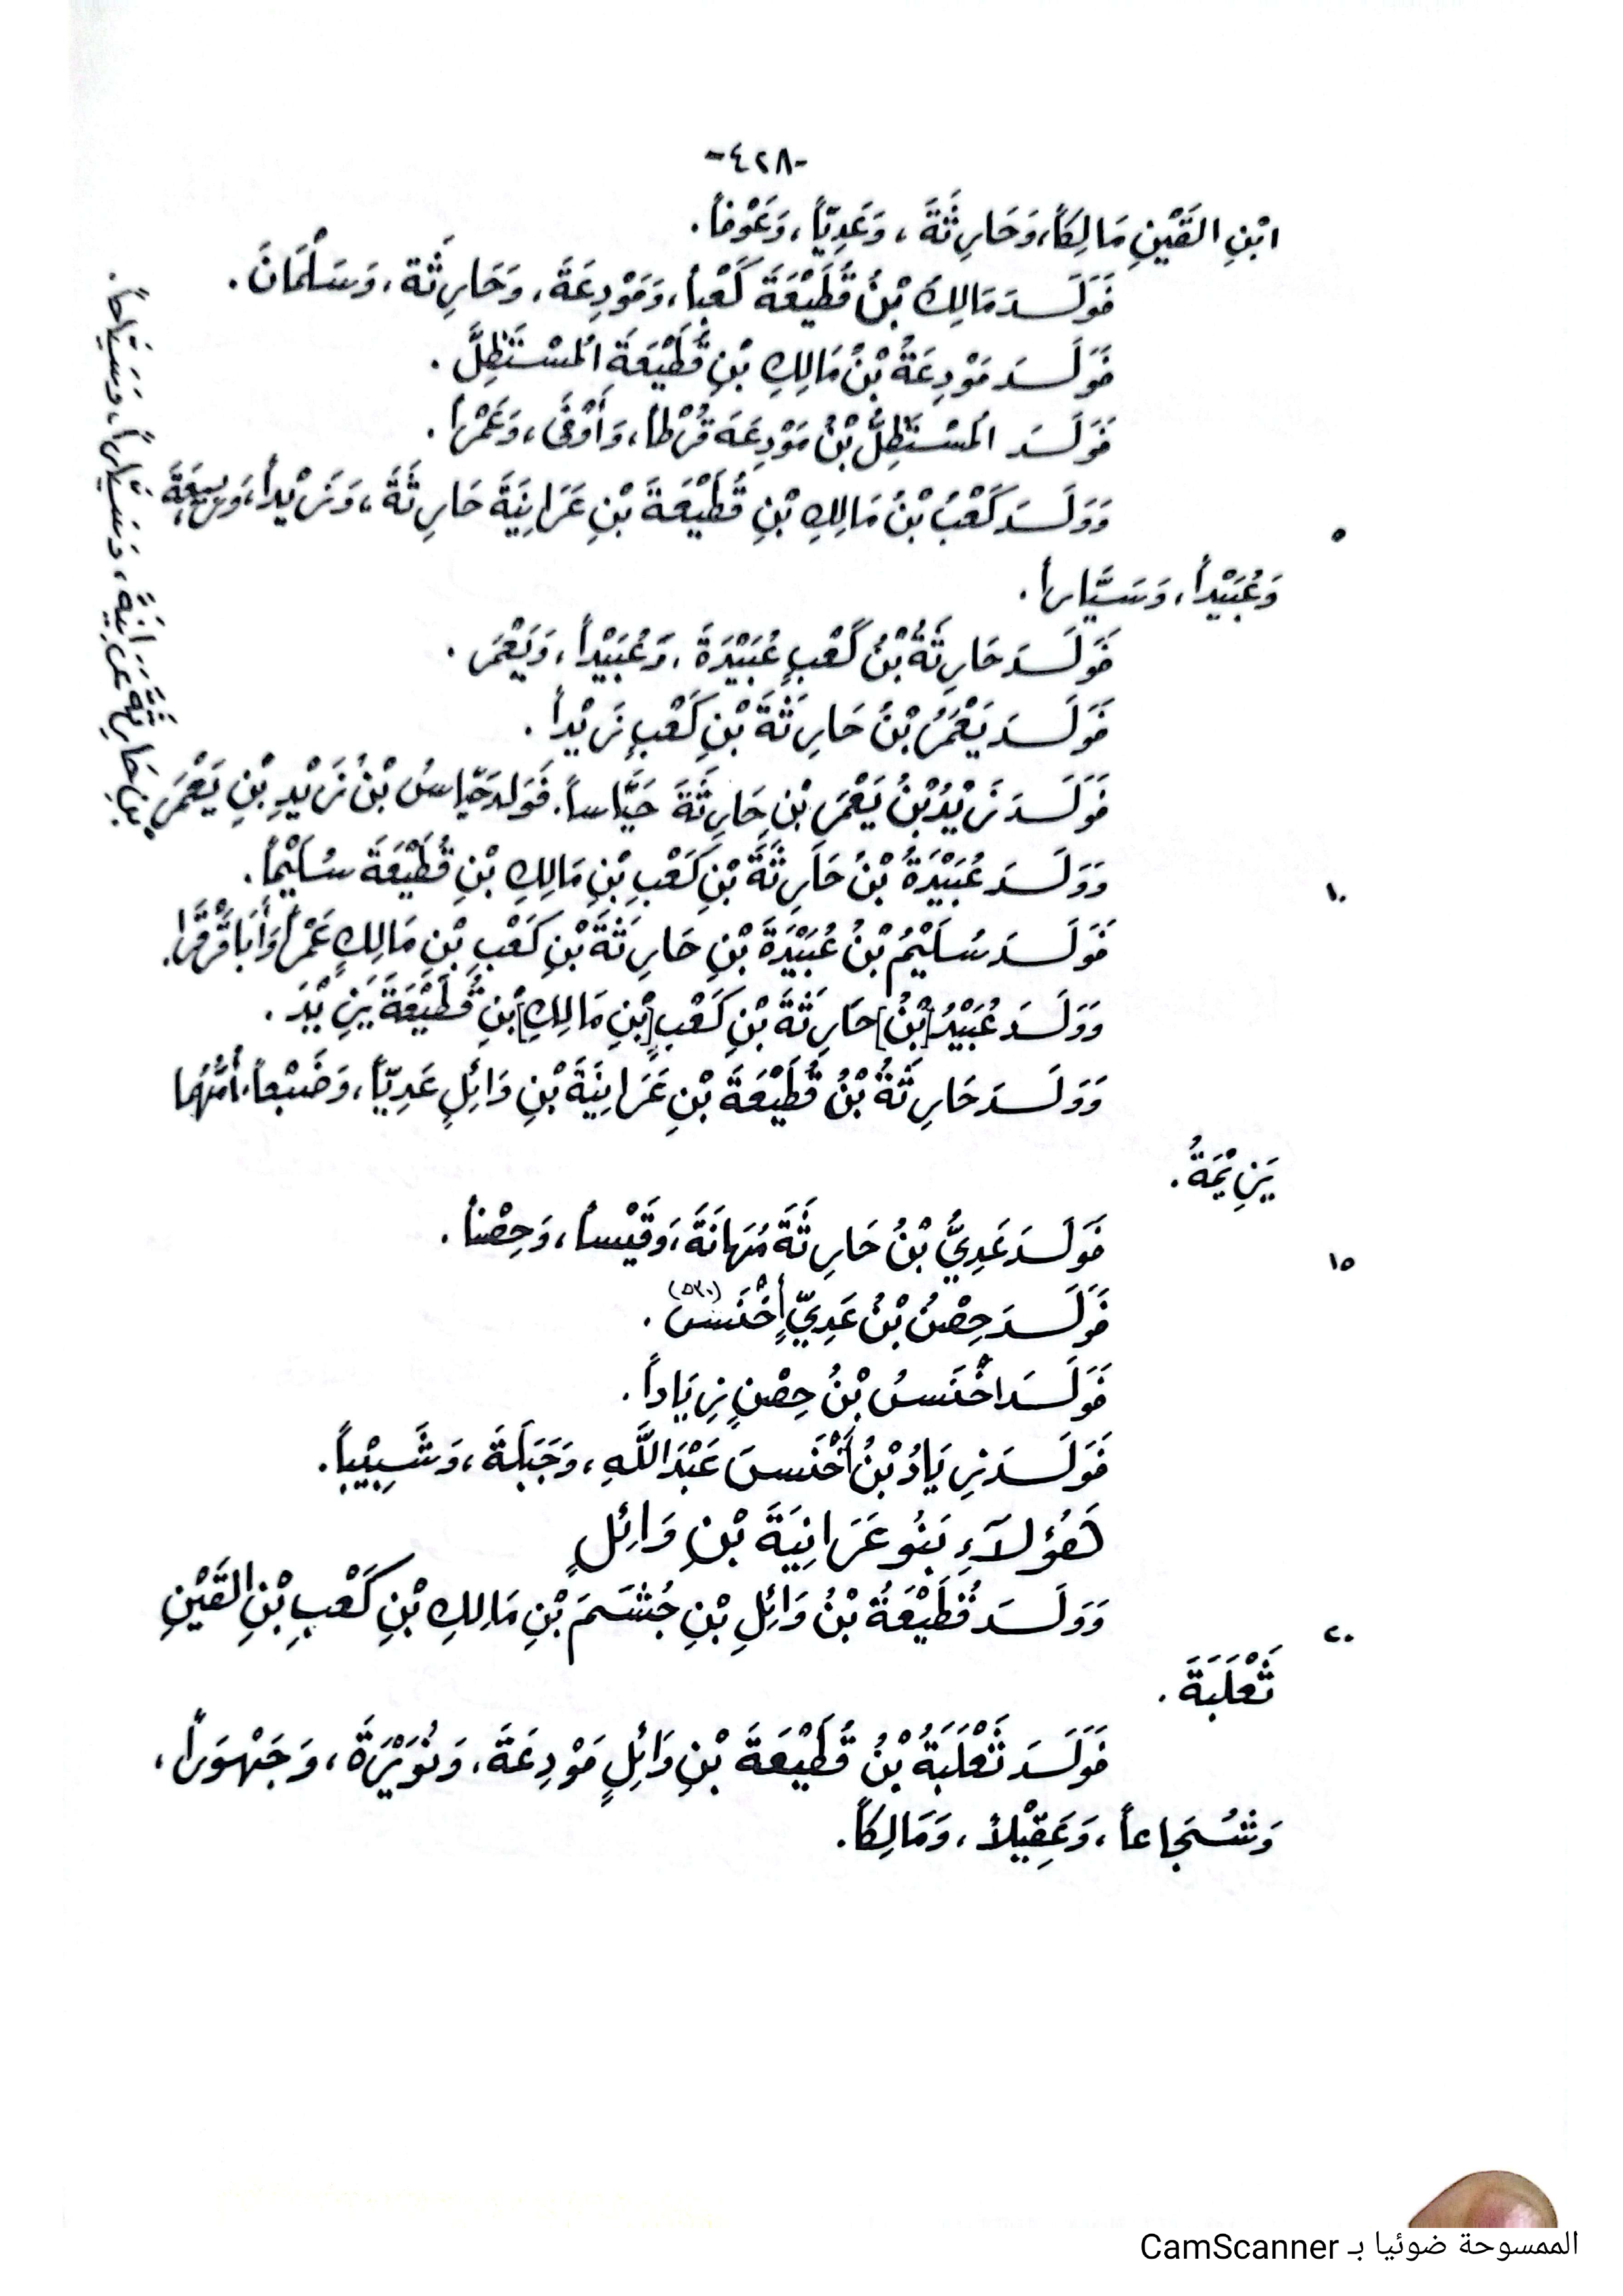 -٤٢٨-
ابْنِ القَيْنِ مَالِكاً، وَحَارِثَةَ ، وَعَدِيّاً، وَعَوْفاً.
فَوَلَدَ مَالِكُ بْنُ قُطَيْعَةَ كَعْباً، وَمَوْدِعَةَ، وَحَارِثَة، وَسَلْمَانَ.
فَوَلَدَ مَوْدِعَةُ بْنُ مَالِكِ بْنِ قُطَيْعَةَ المُسْتَظِلَّ .
فَوَلَدَ المُسْتَظِلُّ بْنُ مَوْدِعَةَ قُرْطاً، وَأَوْفَى، وَعَمْراً .
٥
وَوَلَدَ كَعْبُ بْنُ مَالِكِ بْنِ قُطَيْعَةَ بْنِ عَرَانِيَةَ حَارِثَةَ ، وَزَيْداً، وَرَبِيعَةَ،
وَعُبَيْداً، وَسَيَّاراً.
فَوَلَدَ حَارِثَةُ بْنُ كَعْبٍ عُبَيْدَةَ، وَعُبَيْداً، وَيَعْمَرَ .
فَوَلَدَ يَعْمَرُ بْنُ حَارِثَةَ بْنِ كَعْبٍ زَيْداً .
فَوَلَدَ زَيْدُ بْنُ يَعْمَرَ بْنِ حَارِثَةَ حَيَّاساً. فَوَلَدَ حَيَّاسُ بْنُ زَيْدِ بْنِ يَعْمَرَ
بْنِ حَارِثَةَ عَرَانِيَةَ، وَسَيَّاراً، وَسَيَّاحاً.
١٠
وَوَلَدَ عُبَيْدَةُ بْنُ حَارِثَةَ بْنِ كَعْبِ بْنِ مَالِكِ بْنِ قُطَيْعَةَ سُلَيْماً.
فَوَلَدَ سُلَيْمُ بْنُ عُبَيْدَةَ بْنِ حَارِثَةَ بْنِ كَعْبِ بْنِ مَالِكٍ عَمْراً، وَأَبَا قُرَّةَ.
وَوَلَدَ عُبَيْدُ [بْنُ] حَارِثَةَ بْنِ كَعْبِ [بْنِ مَالِكِ] بْنِ قُطَيْعَةَ يَزِيْدَ .
وَوَلَدَ حَارِثَةُ بْنُ قُطَيْعَةَ بْنِ عَرَانِيَةَ بْنِ وَائِلٍ عَدِيّاً، وَضَبْعاً، أُمُّهُمَا
يَزِيْمَةُ .
١٥
فَوَلَدَ عَدِيُّ بْنُ حَارِثَةَ مُهَانَةَ، وَقَيْساً، وَحِصْناً .
فَوَلَدَ حِصْنُ بْنُ عَدِيٍّ أَخْنَسَ (٥٣٠) .
فَوَلَدَ أَخْنَسُ بْنُ حِصْنٍ زِيَاداً .
فَوَلَدَ زِيَادُ بْنُ أَخْنَسَ عَبْدَ اللَّهِ ، وَجَبَلَةَ ، وَشَبِيْباً.
هَؤُلَاءِ بَنُو عَرَانِيَةَ بْنِ وَائِلٍ
٢٠
وَوَلَدَ قُطَيْعَةُ بْنُ وَائِلِ بْنِ جُشَمَ بْنِ مَالِكِ بْنِ كَعْبِ بْنِ القَيْنِ
ثَعْلَبَةَ .
فَوَلَدَ ثَعْلَبَةُ بْنُ قُطَيْعَةَ بْنِ وَائِلٍ مَوْدِعَةَ، وَنُوَيْرَةَ ، وَجَهْوَراً ،
وَشُجَاعاً ، وَعَقِيْلاً ، وَمَالِكاً.
الممسوحة ضوئيا بـ CamScanner